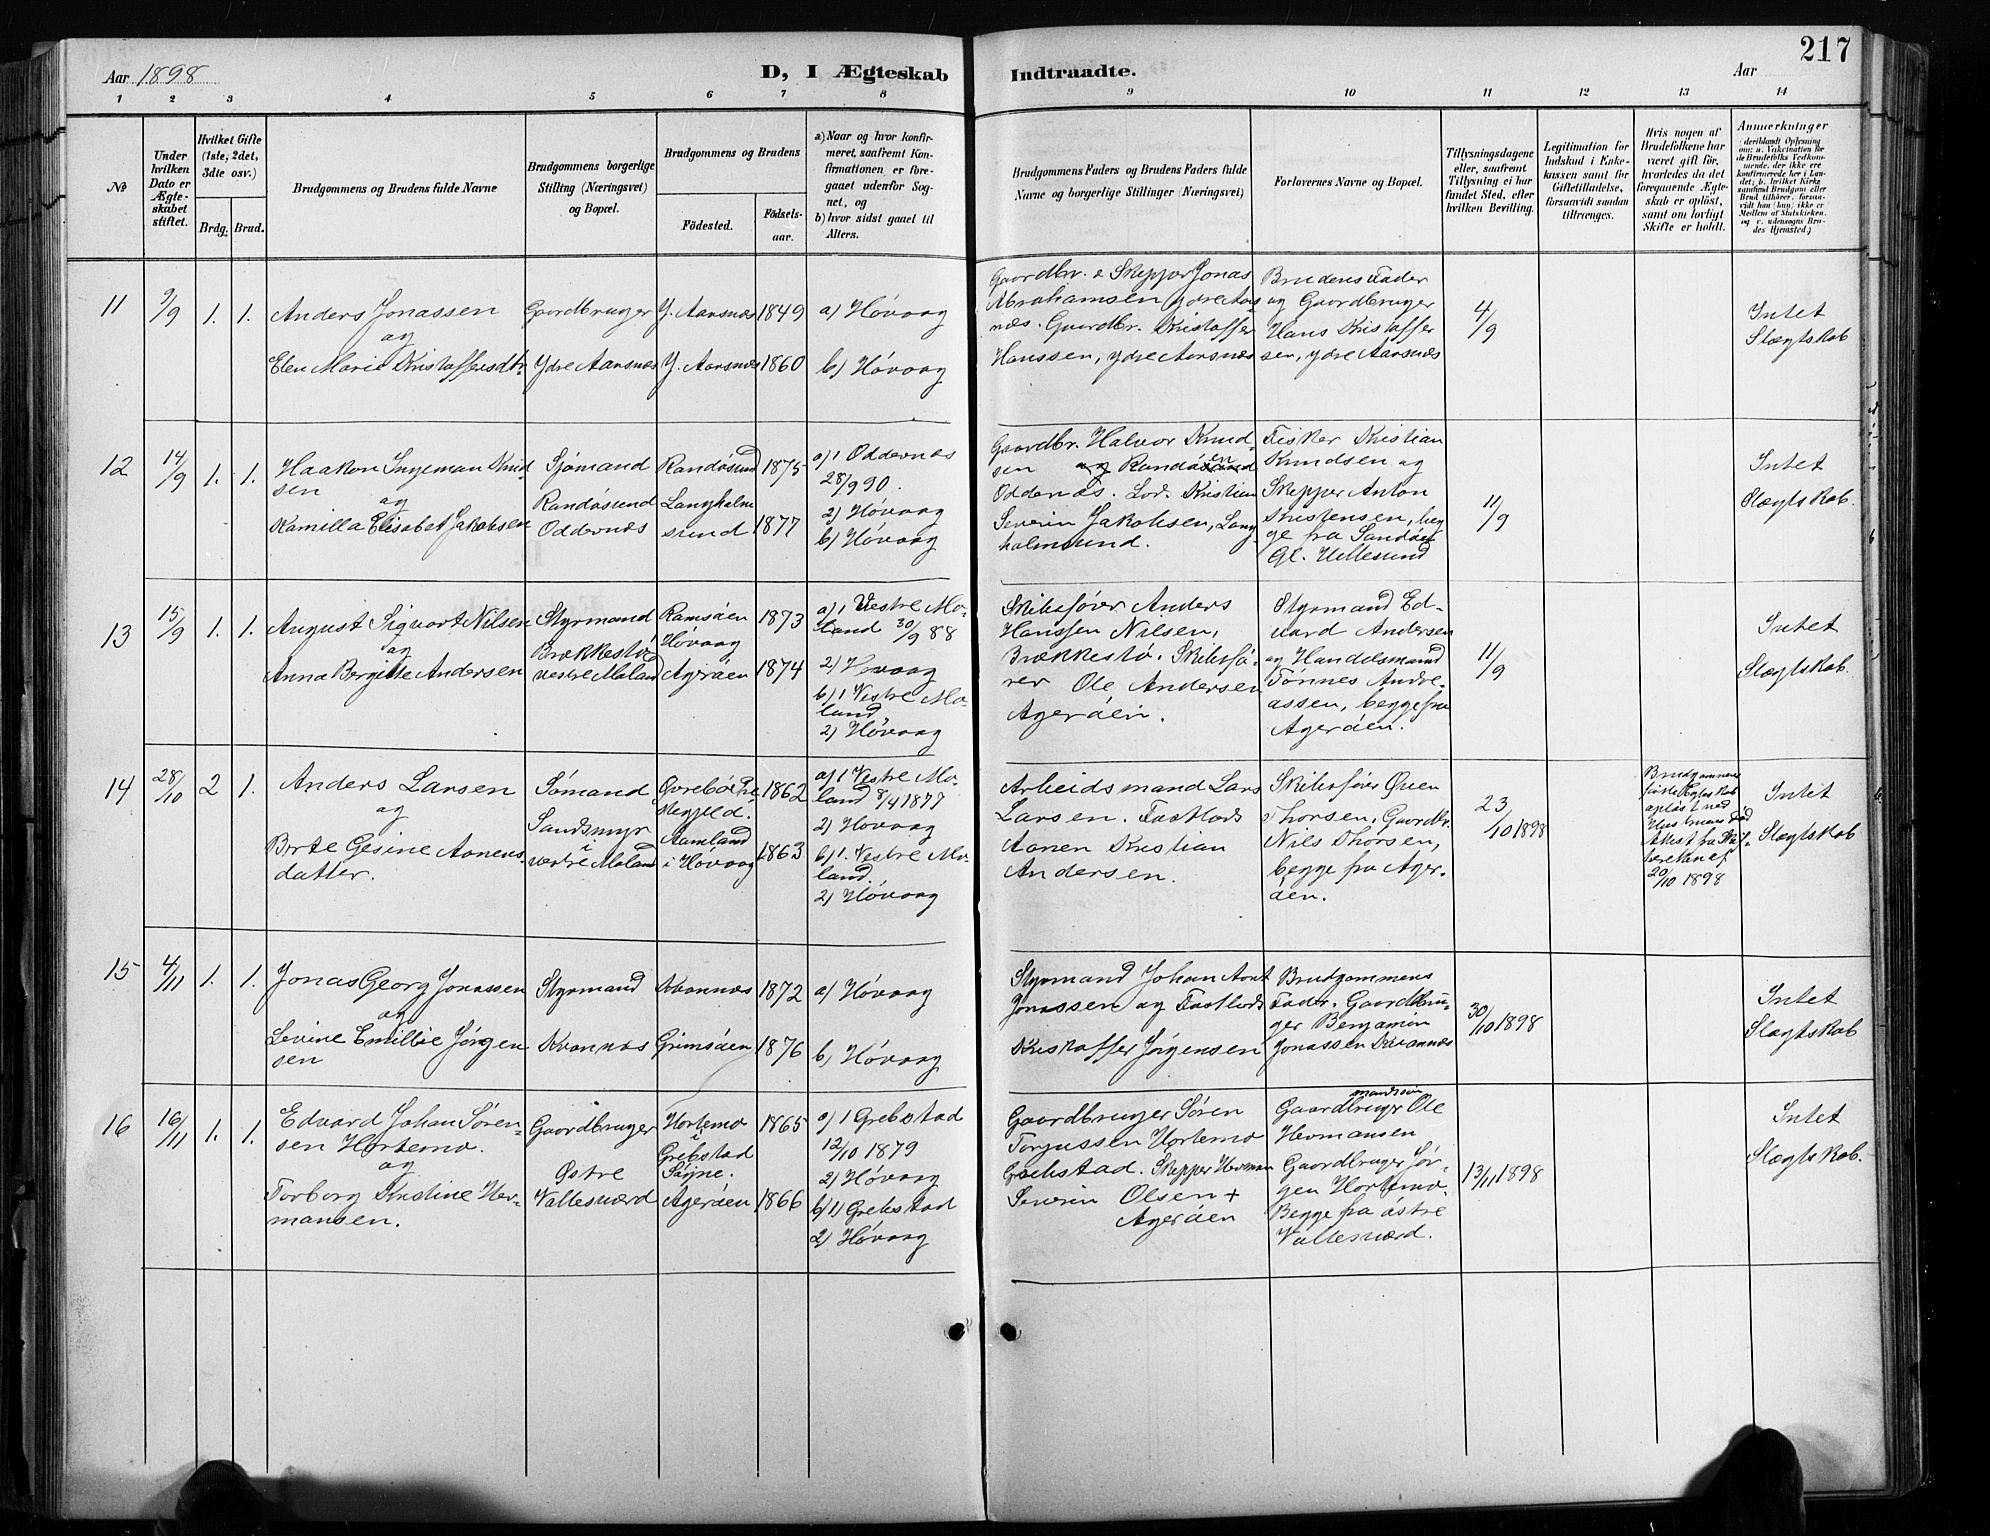 Aar 1898
D, I Ægteskab Indtraadte.
217
Aar
1 2 3 4 5 6 7 8 9 10 11 12 13 14
No
Under hvilken Dato er Ægteskabet stiftet.
Hvilket Gifte (1ste, 2det, 3dte osv.)
Brdg. Brud.
Brudgommens og Brudens fulde Navne
Brudgommens borgerlige Stilling (Næringsvei) og Bopæl.
Brudgommens og Brudens
Födested.
Födsels-aar.
a) Naar og hvor konfirmeret, saafremt Konfirmationen er foregaaet udenfor Sognet, og
b) hvor sidst gaaet til Alters.
Brudgommens Faders og Brudens Faders fulde Navne og borgerlige Stillinger (Næringsvei)
Forlovernes Navne og Bopæl.
Tillysningsdagene eller, saafremt Tillysning ei har fundet Sted, efter hvilken Bevilling.
Legitimation for Indskud i Enkekassen samt for Giftetilladelse, forsaavidt saadan tiltrænges.
Hvis nogen af Brudefolkene har været gift för, hvorledes da det foregaaende Ægteskab er oplöst, samt om lovligt Skifte er holdt.
Anmærkninger (deriblandt Oplysning om: a. Vakcination for de Brudefolks Vedkommende, der ikke ere konfirmerede her i Landet; b. hvilket Kirkesamfund Brudgom eller Brud tilhører, forsaavidt han (hun) ikke er Medlem af Statskirken, og c. udensogns Brudes Hjemsted.)
11
9/9
1. 1.
Anders Jonassen
og
Elen Marie Kristoffersdtr
Gaardbruger
Ydre Aarsnæs
Y. Aarsnæs 1849
Y. Aarsnæs 1860
a) Høvaag
b) Høvaag
Gaardbr. & Skipper Jonas
Abrahamsen ydre Aars-
næs. Gaardbr. Kristoffer
Hanssen, ydre Aarsnæs
Brudens Fader
og Gaardbruger
Hans Kristoffer
sen, ydre Aarsnæs
4/9
Intet
Slægtskab
12
14/9
1. 1.
Haakon Ingeman Knud
sen
og
Kamilla Elisabet Jakobsen
Sjømand
Randøsund
Oddernæs
Randøsund 1875
Langholm
sund 1877
a) 1 Oddernæs
28/9 90.
2) Høvaag
b) Høvaag
Gaardbr. Halvor Knud
sen og Randøsund
Oddernæs. Lods. Kristian
Severin Jakobsen, Lang
holmsund.
Fisker Kristian
Knudsen og
Skipper Anton
Kristensen, beg
ge fra Sandøen
Gl. Hellesund
11/9
Intet
Slægtskab.
13
15/9
1. 1.
August Sigvart Nilsen
og
Anna Bergitte Andersen
Styrmand
Brækkestø
vestre Moland
Ramsøen 1873
Høvaag
Agerøen 1874
a) 1 Vestre Mo-
land 30/9 88
2) Høvaag
b) 1 Vestre Mo-
land,
2) Høvaag
Skibsfører Anders
Hanssen Nilsen,
Brækkestø. Skibsfø-
rer Ole Andersen
Agerøen.
Styrmand Ed-
vard Andersen
og Handelsmand
Tønnes Andre-
assen, begge fra
Agerøen.
11/9
Intet
Slægtskab.
14
28/10
2 1.
Anders Larsen
og
Birte Gesine Aanens-
datter.
Sømand
Sandsmyr
i
vestre Moland
Øvrebø Præ
stegjeld. 1862
Aamland
i Høvaag 1863
a) 1 Vestre Mo-
land 8/4 1877
2) Høvaag
b) 1. Vestre Mo-
land.
2) Høvaag
Arbeidsmand Lars
Larsen. Fastlods
Aanen Kristian
Andersen.
Skibsfører Øven
Thorsen, Gaardbr.
Nils Thorsen,
begge fra Ager-
øen.
23/10 1898
Brudgommens
første Ægteskab
opløst ved
Hustruens Død
Attest fra Ski-
feretten af
20/10 1898
Intet
Slægtskab
15
4/11
1. 1.
Jonas Georg Jonassen
og
Levine Emillie Jørgen
sen
Styrmand
Kvannæs
Kvannæs 1872
Grimsøen 1876
a) Høvaag
b) Høvaag
Styrmand Johan Aant
Jonassen og Fastlods
Kristoffer Jørgensen
Brudgommens
Fader. Gaardbru-
ger Benjamin
Jonassen Kvannæs
30/10 1898
Intet
Slægtskab
16
16/11
1. 1.
Edvard Johan Søren-
sen Hortemo.
og
Torborg Kristine Her-
mansen.
Gaardbruger
Østre
Vallesværd
Hortemo 1865
i
Grebstad
Søgne.
Agerøen 1866
a) 1 Grebstad
12/10 1879
2) Høvaag
b) 1) Grebstad
2) Høvaag
Gaardbruger Søren
Torjussen Hortemo
Grebstad. Skipper Herman
Severin Olsen +
Agerøen
mandsøn
Gaardbruger Ole
Hermansen
Gaardbruger Jør-
gen Hortemo.
Begge fra østre
Vallesværd.
13/11 1898
Intet
Slægtskab.